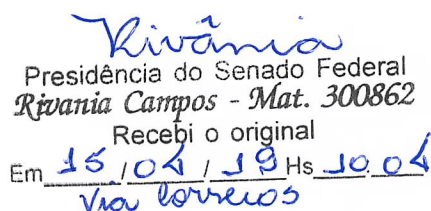 Rivânia
Presidência do Senado Federal
Rivania Campos - Mat. 300862
Recebi o original
Em 15 / 04 / 19 Hs 10:04
Via Correios